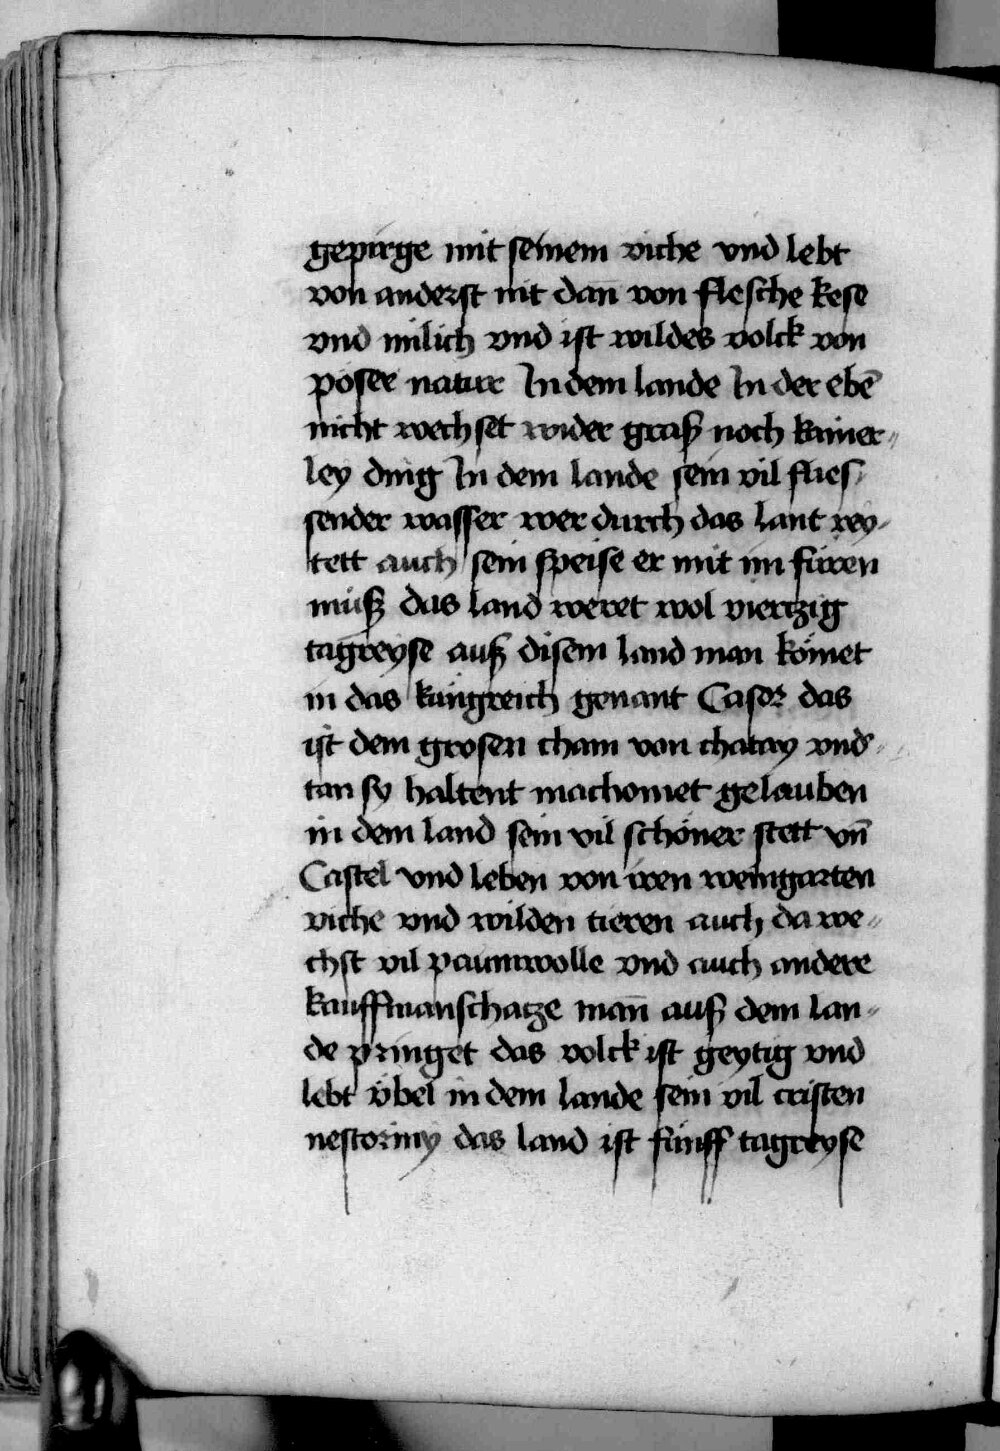 gepirge mit seinem viche vnd lebt
von anderst nit dan von flesche kese
vnd milich vnd ist wildes volck von
pöser natur In dem lande In der ebē
nicht wechset wider graß noch kainer„
ley ding In dem lande sein vil flies„
sender wasser wer durch das lant rey„
tett auch sein speise er mit im füren
muß das land weret wol viertzig
tagreyse auß disem land man kömet
in das küngreich genant Casor das
ist dem grosen cham von chatay vnd„
tan sy haltent machomet gelauben
in dem land sein vil schöner stett vn̄
Castel vnd leben von iren weingarten
viche vnd wilden tieren auch da we„
chst vil paumwolle vnd auch andere
kauffmanschatze man̄ auß dem lan„
de pringet das volck ist geytig vnd
lebt übel in dem lande sein vil cristen
nestoriny das land ist fünff tagreyse